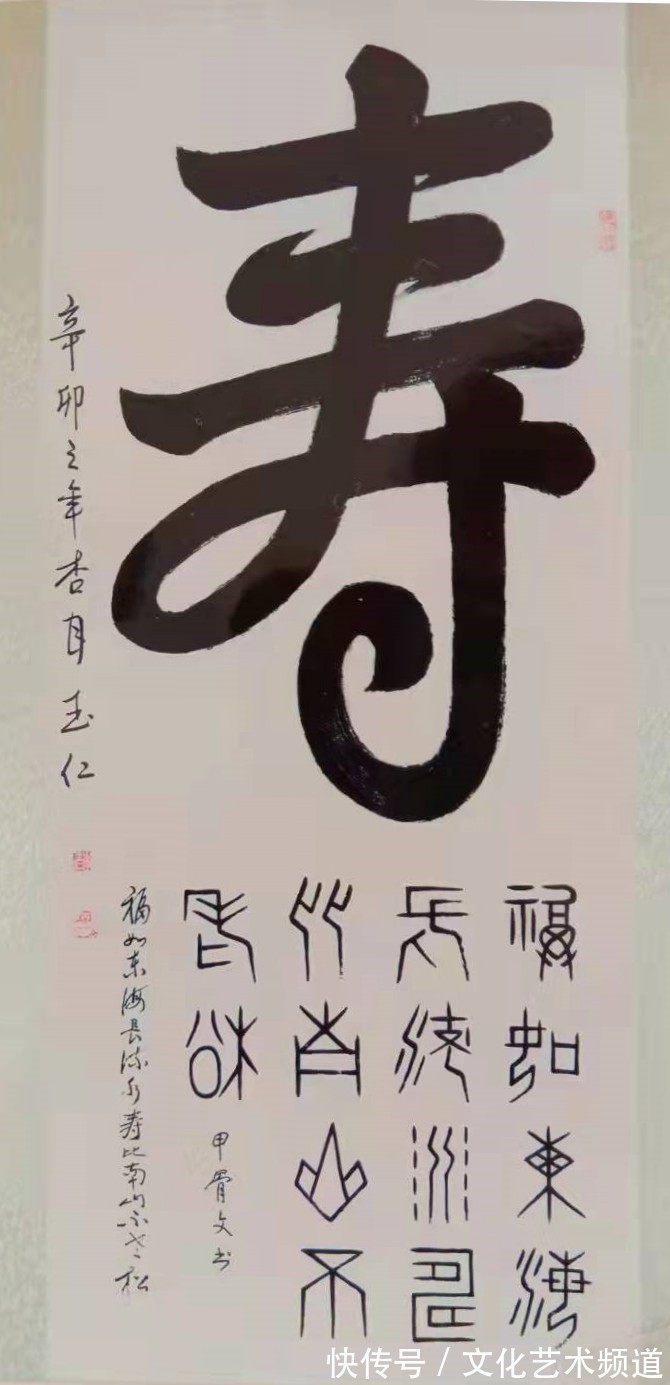 寿
辛卯之年杏月玉仁
福如東海
長流水壽
比南山不
老松
甲骨文书
福如东海長流水寿比南山不老松
快传号 / 文化艺术频道